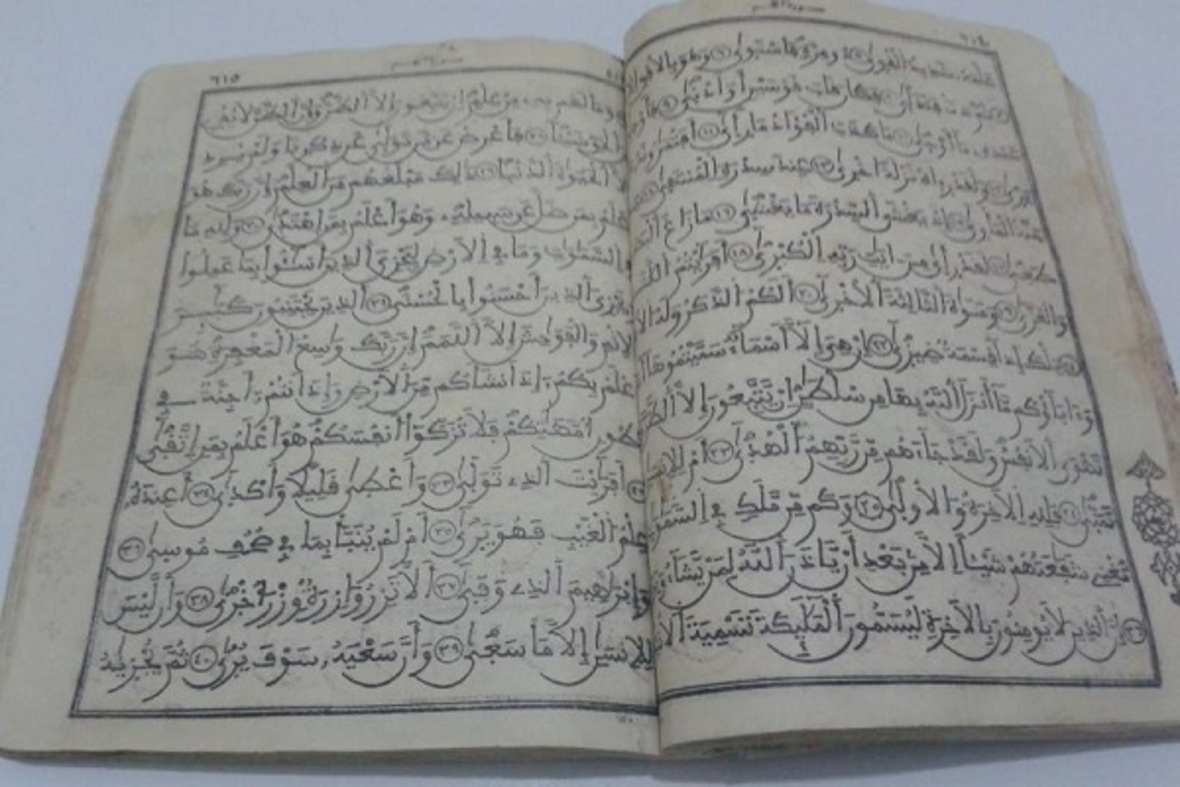 ٦١٤
علمه شديد القوى ٥ ذو مرة فاستوى ٦ وهو بالافق الا
فكان قاب قوسين أو أدنى ٩ فأو
عبده ما أوحى ١٠ ما كذب الفؤاد ما رأى ١١ أفتمرونه
يرى ١٢ ولقد رءاه نزلة اخرى ١٣ عند سدرة المنتهى ١٤
جنة المأوى ١٥ إذ يغشى السدرة ما يغشى ١٦ ما زاغ البصر
طغى ١٧ لقد رأى من ايت ربه الكبرى ١٨ أفرأيتم اللت
والعزى ١٩ ومنوة الثالثة الأخرى ٢٠ ألكم الذكر وله الا
تلك إذا قسمة ضيزى ٢٢ إن هي إلا أسماء سميتموها أنتم
وءاباؤكم ما أنزل الله بها من سلطن إن يتبعون إلا الظن
تهوى الأنفس ولقد جاءهم من ربهم الهدى ٢٣ أم للإنسن
تمنى ٢٤ فلله الآخرة والأولى ٢٥ وكم من ملك في السموت
تغني شفعتهم شيئا إلا من بعد أن يأذن الله لمن يشاء
٢٦ إن الذين لا يومنون بالآخرة ليسمون الملئكة تسمية الأنثى
٦١٥
وما لهم به من علم إن يتبعون إلا الظن وإن الظن لا يغني
من الحق شيئا ٢٧ فأعرض عن من تولى عن ذكرنا ولم يرد
إلا الحيوة الدنيا ٢٨ ذلك مبلغهم من العلم إن ربك هو
أعلم بمن ضل عن سبيله وهو أعلم بمن اهتدى ٢٩ ولله ما
في السموت وما في الأرض ليجزي الذين أسئوا بما عملوا
ويجزي الذين أحسنوا بالحسنى ٣٠ الذين يجتنبون كبئر
الاثم والفوحش إلا اللمم إن ربك وسع المغفرة هو
أعلم بكم إذ أنشأكم من الأرض وإذ أنتم أجنة في
بطون أمهتكم فلا تزكوا أنفسكم هو أعلم بمن اتقى
٣١ أفرأيت الذي تولى ٣٢ وأعطى قليلا وأكدى ٣٣ أعنده
علم الغيب فهو يرى ٣٤ أم لم ينبأ بما في صحف موسى ٣٥
وإبرهيم الذي وفى ٣٦ ألا تزر وازرة وزر أخرى ٣٧ وأن ليس
للإنسن إلا ما سعى ٣٨ وأن سعيه سوف يرى ٣٩ ثم يجزيه